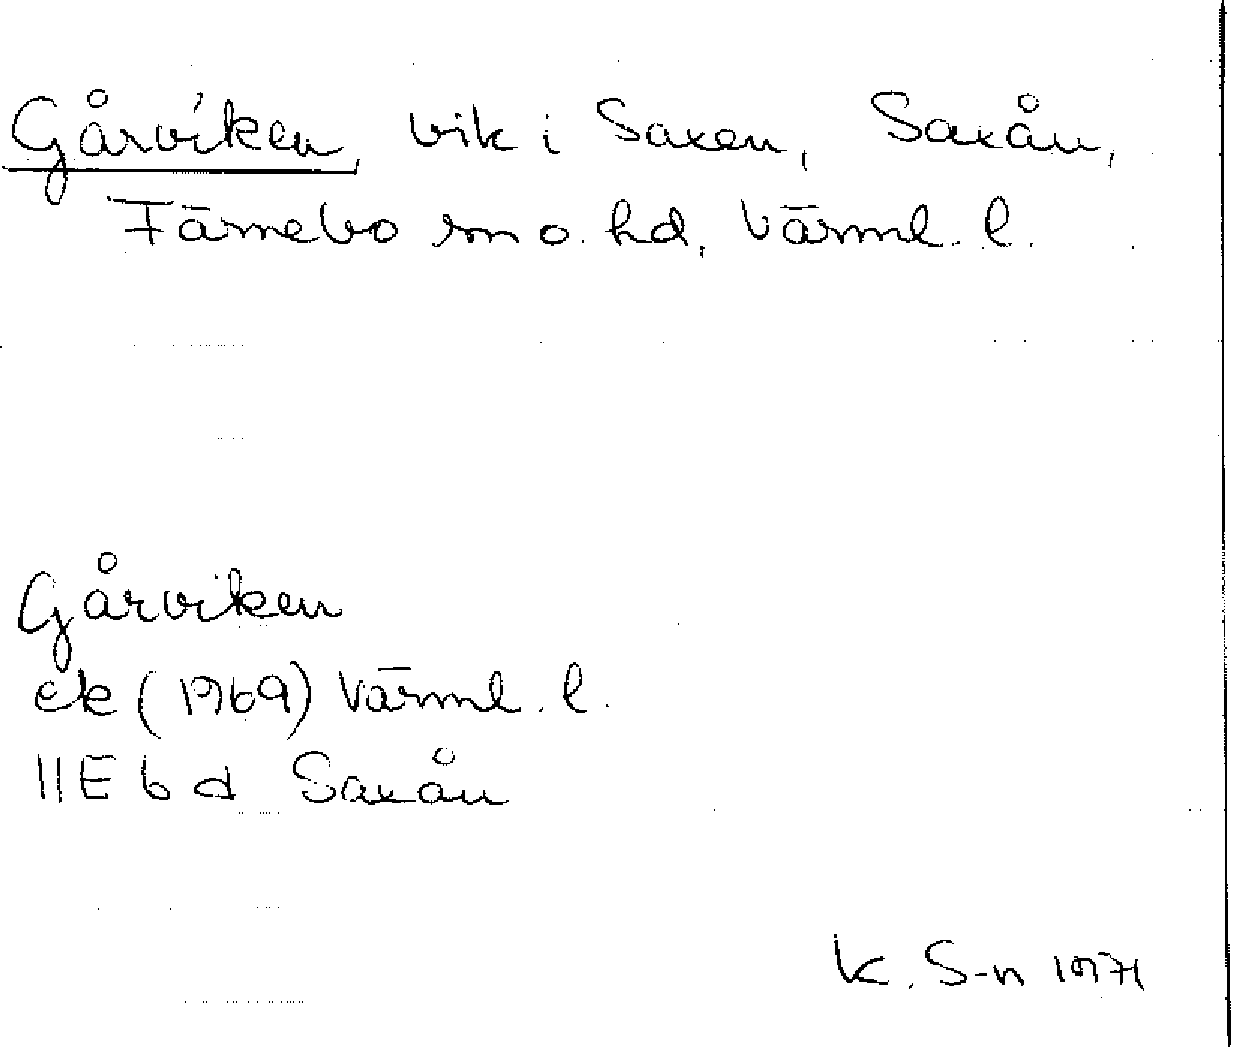 Gårviken, vik i Saxen, Saxån,
Färnebo sn o. hd, Värml. l.
Gårviken
ek (1969) Värml. l.
11E 6 d Saxån
K. S-n 1971